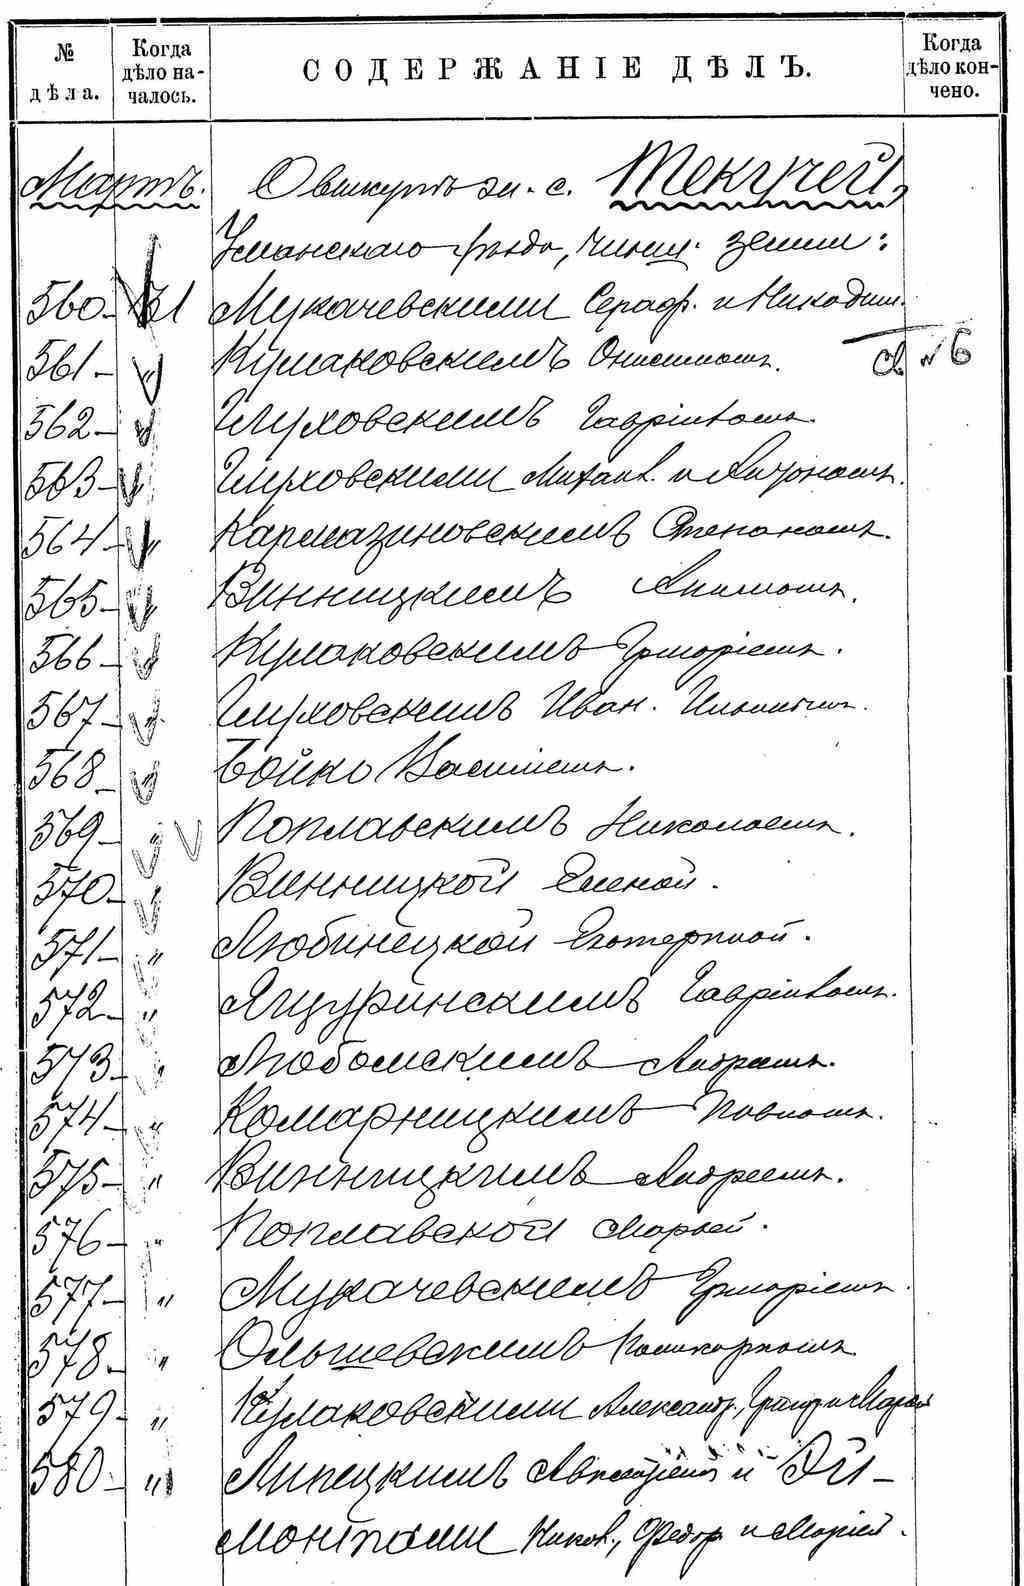 № дѣла.
Когда дѣло началось.
СОДЕРЖАНІЕ ДѢЛЪ.
Когда дѣло кончено.
Мартъ. О выкупѣ въ с. Текучей,
Уманскаго уѣзда, чинш. земли:
560- 31 Мукачевскими Сераф. и Никодим.
561- Кулаковскимъ Онисимомъ. св №6
562- " Глуховскимъ Гавріиломъ.
563- " Глуховскими Михаил. и Антономъ.
564- " Кармазиновскимъ Степаномъ.
565- " Винницкимъ Акимомъ.
566- " Кулаковскимъ Григоріемъ.
567- " Глуховскимъ Иван.
568- " Бойко Василіемъ.
569- " Поплавскимъ Николаемъ.
570- " Винницкой Еленой.
571- " Любинецкой Екатериной.
572- " Ящуринскимъ Гавріиломъ.
573- " Любомскимъ Андреемъ.
574- " Комарницкимъ Павломъ.
575- " Винницкимъ Андреемъ.
576- " Поплавской Марьей.
577- " Мукачевскимъ Григоріемъ.
578- " Ольшевскимъ Поликарпомъ
579- " Кулаковскими Александр., Григор. и Марьей
580- " Липецкимъ и Дй-
монтами Никол., Федор. и Маріей.